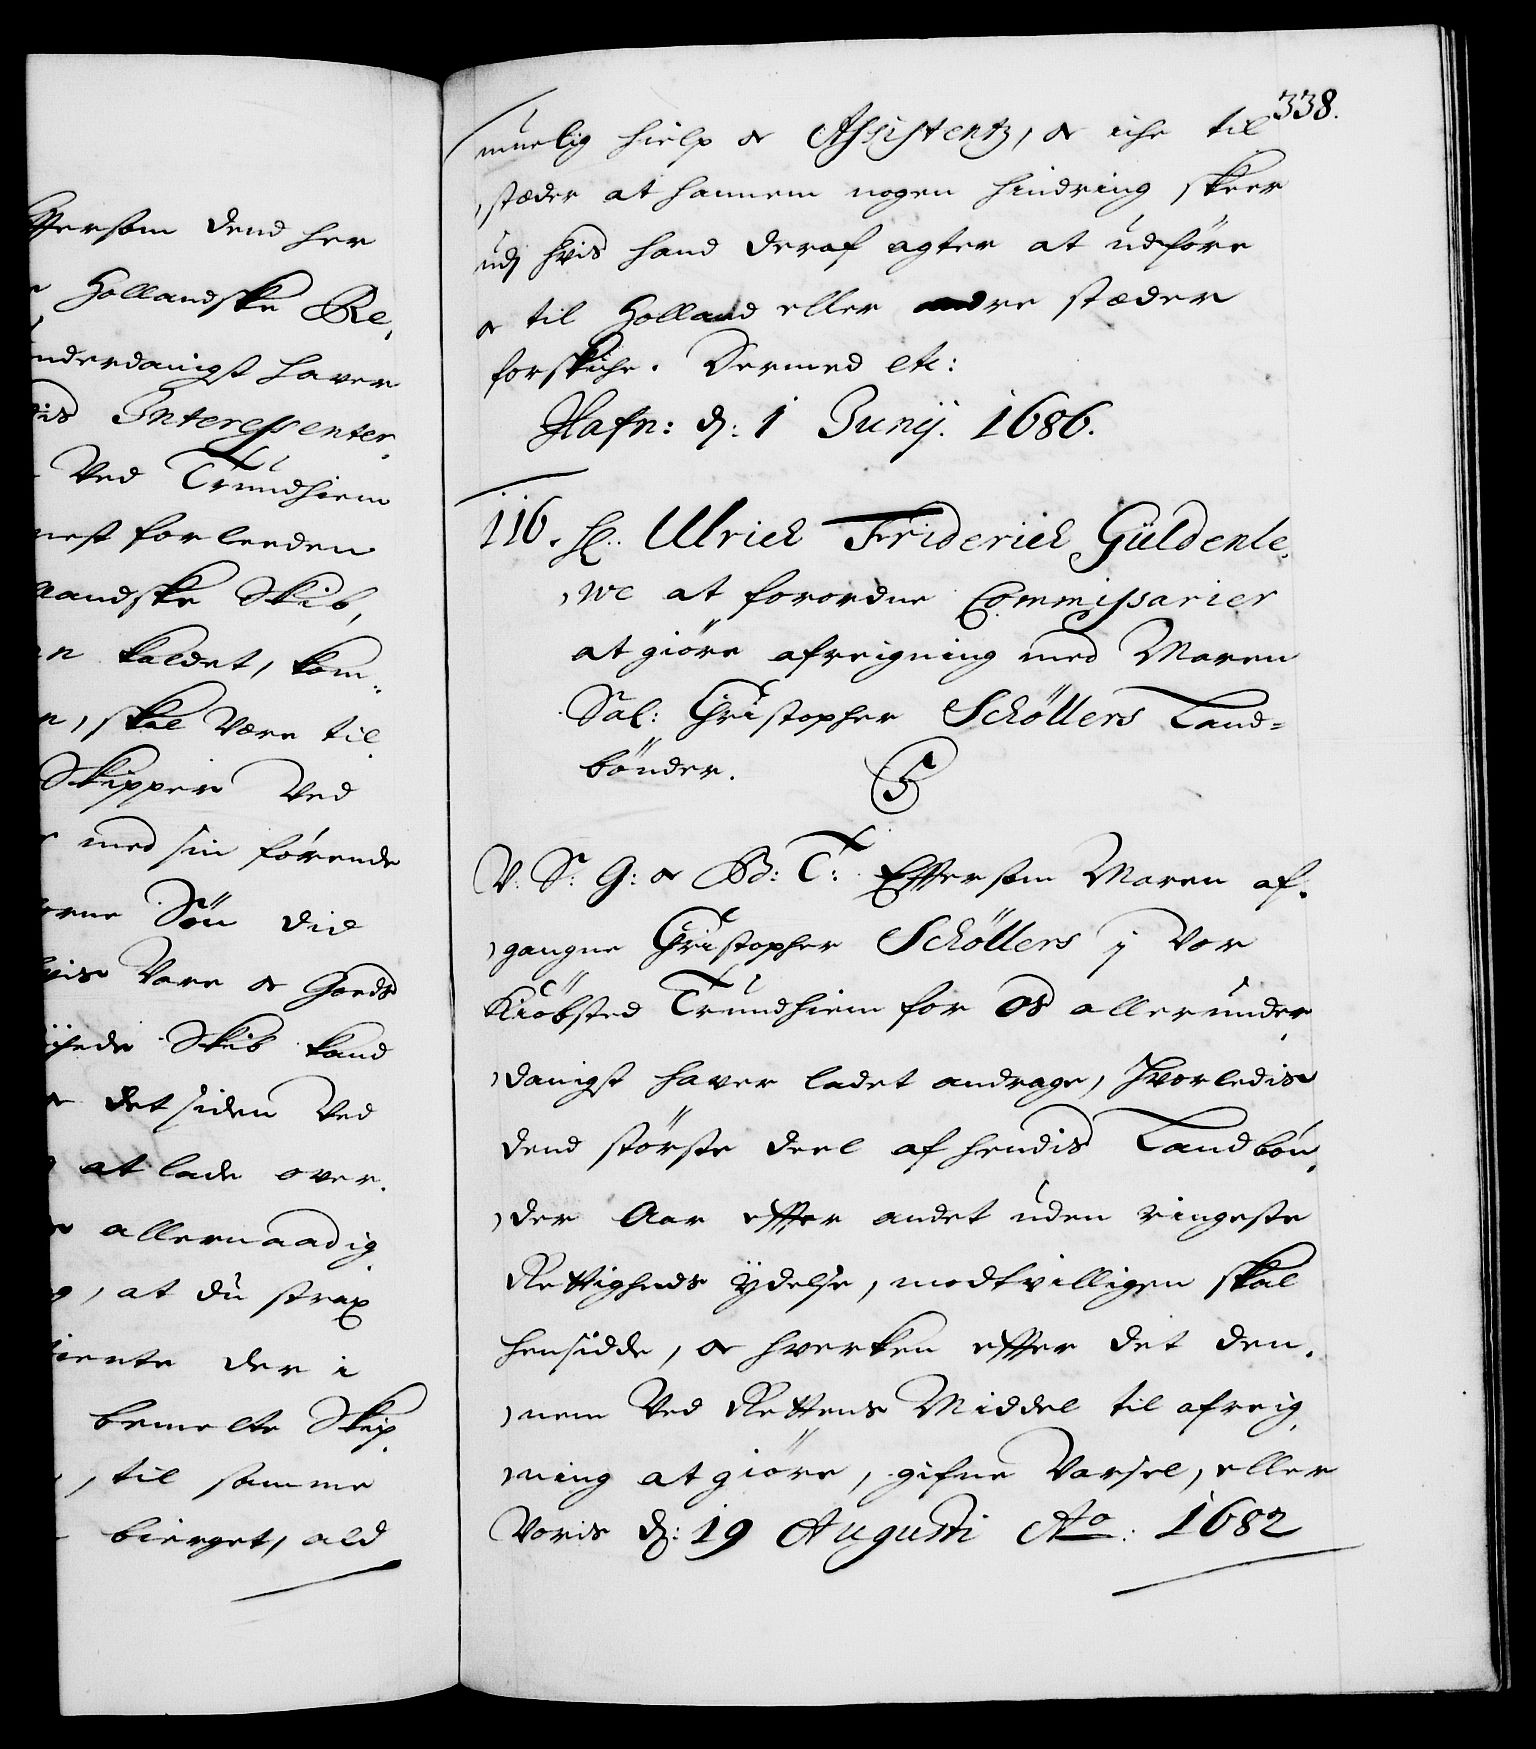 ffersom dend her
Hollandske Re,
underdanigst haver
dis Interessenter
Ved Trundhiem
nest forleeden
landske Skib,
n kaldet, kom-
n, skal være til
Skipper ved
med sin førende
orne Søn did
hvis Vare & Goeds
Skib kand
det siden ved
at lade over.
allernaadig
g, at du strax
tiente der i
bemelte Skip,
, til samme
bierget, ald
338.
muelig hielp & Assistentz, & iche til
stæder at hannem nogen hindring skeer
udj hvis hand deraf agter at udføre
& til Holland eller andre stæder
forskiche. Dermed etc:
Hafn: d: 1 Junij. 1686.
116. H: Ulrich Friderich Güldenle,
,we at forordne Commissarier
at giöre afreigning med Maren
Sal: Christopher Schöllers Land-
bönder.
C5
V. S: G: & B: T: Effersom Maren af,
,gangne Christopher Schöllers j Vor
Kiöbsted Trundhiem for Os allerunder,
,danigst haver ladet andrage, hvorledis
dend störste deel af hendis Landbön,
,der Aar effter andet uden ringeste
Rettigheds ÿdelse, modtvilligen skal
hensidde, & hverken effter det den,
,nem ved Rettens Middel til afreig,
,ning at giöre, gifne Varsel, eller
Voris d: 19 Augusti Ao: 1682